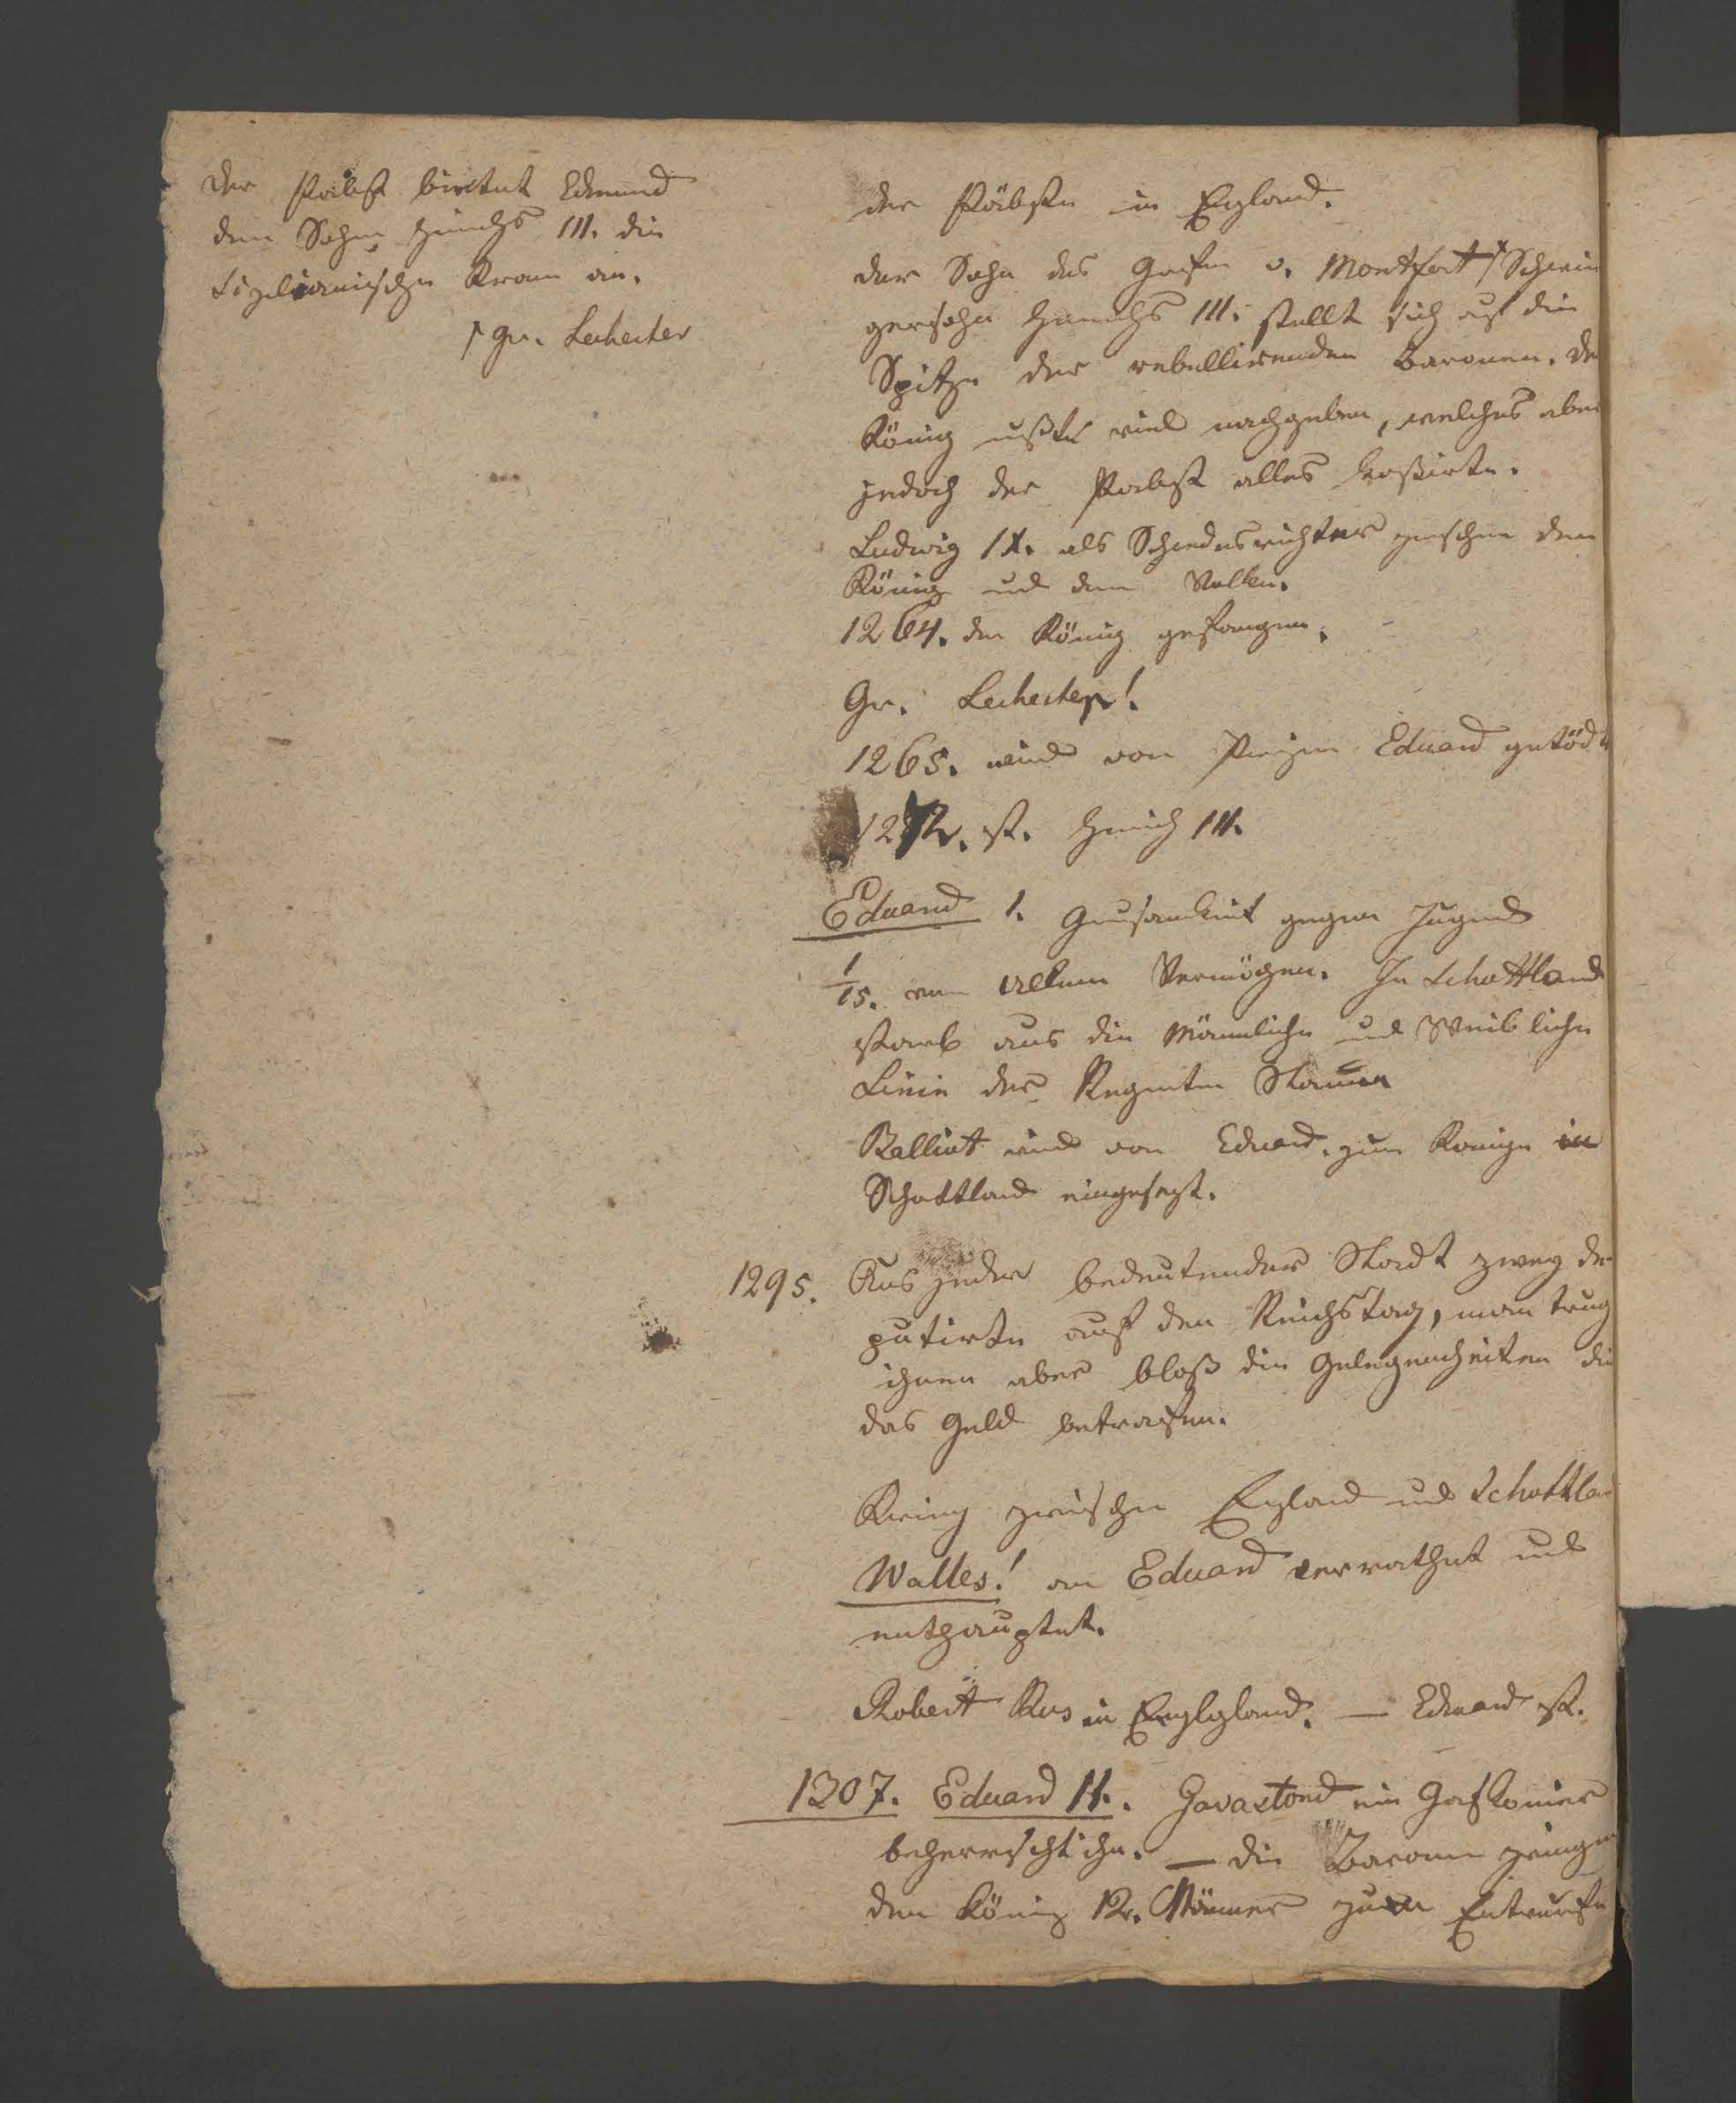 der Pabst biethet Edmund
dem Sohn Heinrichs III. die
Sizilianische Kron an.
Gr. Leihester
der Päbste in England.
der Sohn des Grafen v. Montfort Schwie
gersohn Heinrichs III. stellt sich auf die
Spitze der rebellirenden Baronen. De
König mußte viel nachgeben, welches aber
jedoch der Pabst alles kassirte.
Ludwig IX. als Schiedesrichter zwischen dem
König und dem Volke.
1264. der König gefangen.
Gr. Leihester!
1265. wird von Prizen Eduard getödt
1272. st. Heinrich III.
Eduard I. Grausamkeit gegen
1/15. von allem Vermögen. In Schottland
starb aus die Männliche und Weibliche
Linie des Regenten Stamm
Balliot wird von Eduard zum Könige in
Schottland eingesezt.
1295. Aus jeder bedeutender Stadt zwey de
putirte auf den Reichstag, man trug
ihnen aber bloß die Gelegenheiten die
das Geld betrafen.
Krieg zwischen England und Schottlan
Walles! an Eduard verrathet und
enthauptet.
Robert Brus in Englgland. — Eduard st.
1307. Eduard II. Gavastond ein Gaskonier
beherrscht ihn. — die Baronen zwingen
den König 12. Männer zum Entwurfe